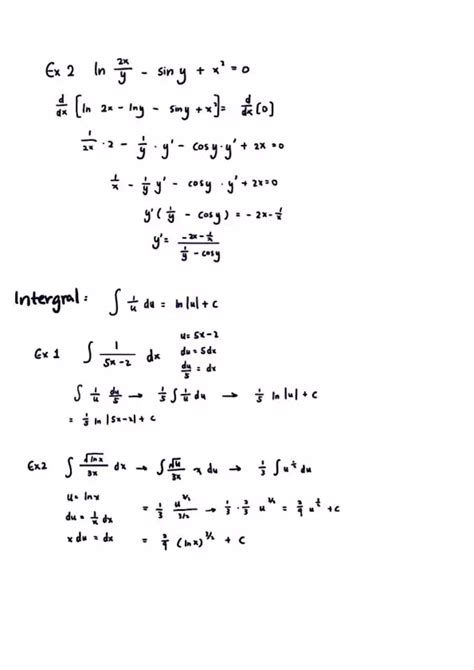 Ex 2 ln 2x/y - sin y + x² = 0
d/dx [ln 2x - ln y - sin y + x²] = d/dx [0]
1/2x · 2 - 1/y · y' - cos y · y' + 2x = 0
1/x - 1/y y' - cos y · y' + 2x = 0
y' (1/y - cos y) = -2x - 1/x
y' = (-2x - 1/x)/(1/y - cos y)
Intergral: ∫ 1/u du = ln|u| + c
Ex 1 ∫ 1/(5x-2) dx
u = 5x-2
du = 5dx
du/5 = dx
∫ 1/u du/5 → 1/5 ∫ 1/u du → 1/5 ln|u| + c
= 1/5 ln |5x-2| + c
Ex2 ∫ √(ln x)/3x dx → ∫ √u/3x x du → 1/3 ∫ u^(1/2) du
u = ln x
du = 1/x dx
x du = dx
= 1/3 u^(3/2)/(3/2) → 1/3 · 2/3 u^(3/2) = 2/9 u^(3/2) + c
= 2/9 (ln x)^(3/2) + c